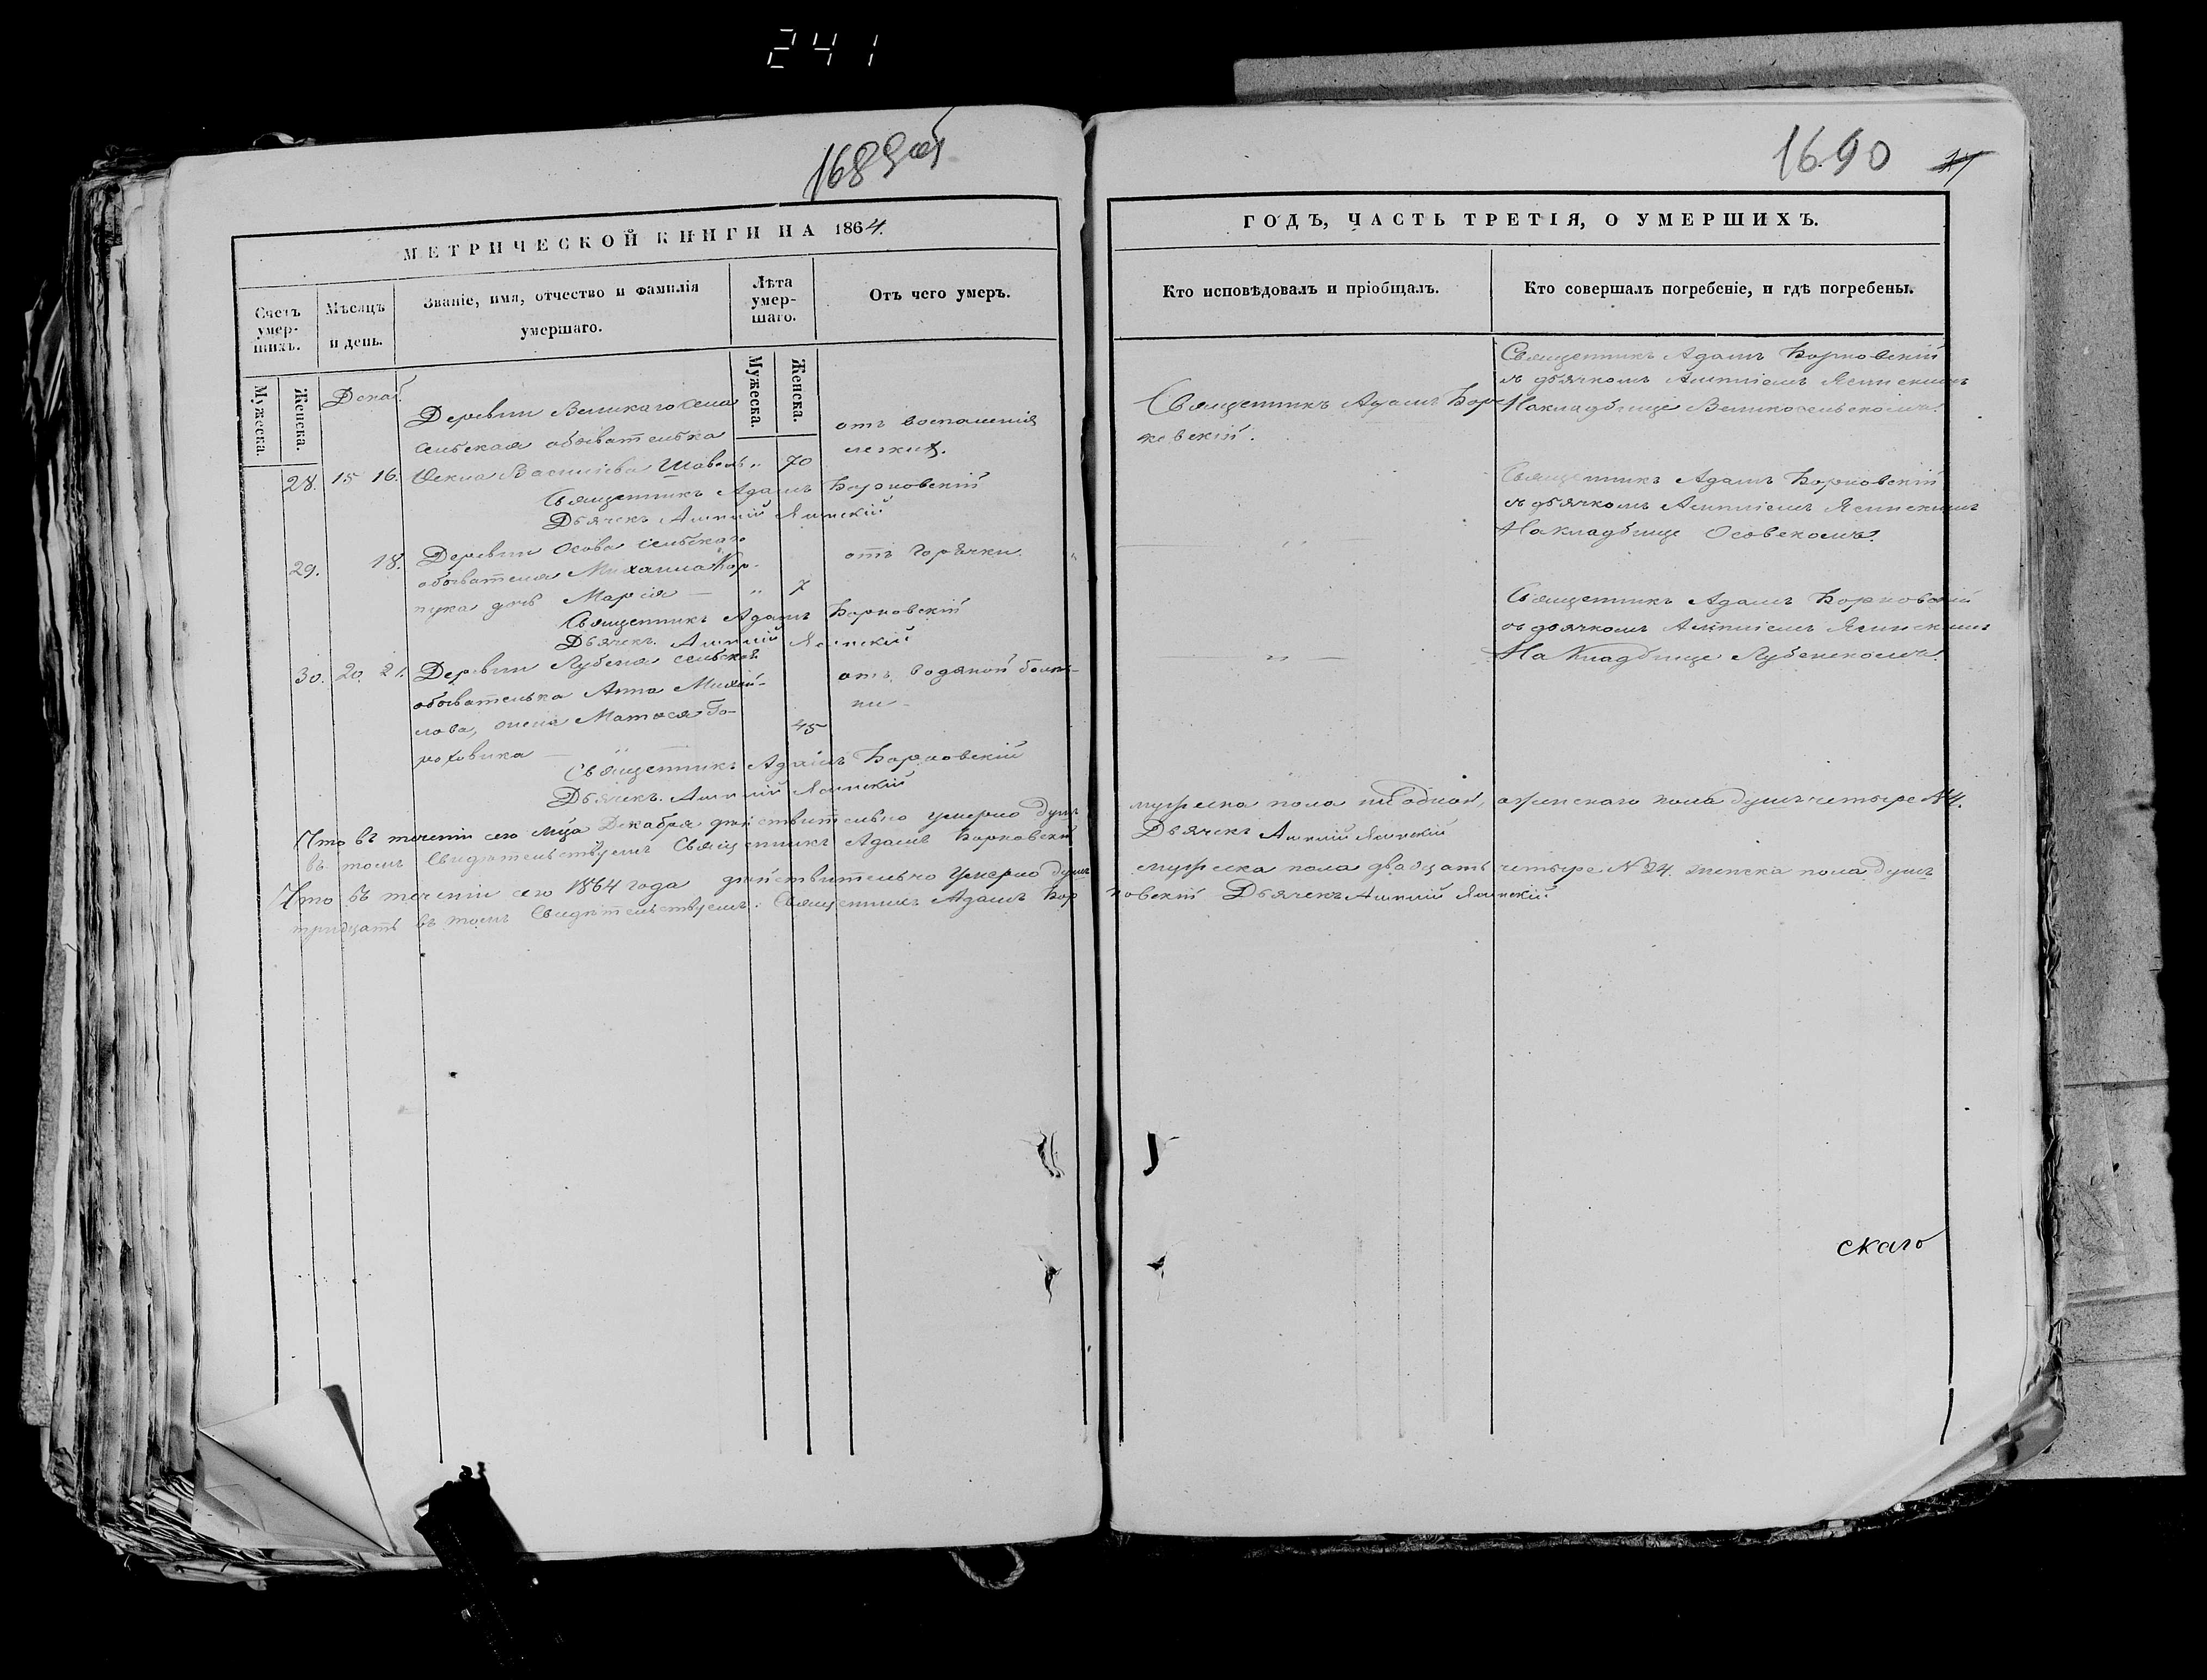 241
1689об
1690
МЕТРИЧЕСКОЙ КНИГИ НА 1864.
Счетъ умер-
шихъ.
Мѣсяцъ
и день.
Званіе, имя, отчество и фамилія
умершаго.
Лѣта
умер-
шаго.
Отъ чего умеръ.
Мужеска.
Женска.
Мужеска.
Женска.
Декаб.
Деревни Великагосела
сельская обывателька
28. 15 16. Ѳекла Васильева Шовель „ 70
отъ воспаленія
легкихъ.
Священникъ Адамъ Борковскій
Дьячекъ Алипій Ялинскій
29. 18. Деревни Осова сельскаго
обывателя Михаила Кор-
пука дочь Марія — „ 7
отъ горячки.
Священникъ Адамъ Борковскій
Дьячекъ Алипій Ялинскій
30. 20. 21. Деревни Лубеня сельская
обывателька Анна Михай-
лова, жена Матвея Го-
45
отъ водяной болѣз-
ни
Священникъ Адамъ Борковскій
Дьячекъ Алипій Ялинскій
Что въ теченіи сего мца Декабря дѣйствительно умерло душъ
въ томъ Свидѣтельствуемъ Священникъ Адамъ Борковскій
Что въ теченіи сего 1864 года дѣйствительно умерло душъ
тридцать въ томъ Свидѣтельствуемъ: Священникъ Адамъ Бор
ГОДЪ, ЧАСТЬ ТРЕТІЯ, О УМЕРШИХЪ.
Кто исповѣдовалъ и пріобщалъ.
Кто совершалъ погребеніе, и гдѣ погребены.
Священникъ Адамъ Бор
ковскій.
Священникъ Адамъ Борковскій
съ дьячкомъ Алипіемъ Ялинскимъ
На кладбище Великосельскомъ.
Священникъ Адамъ Борковскій
съ дьячкомъ Алипіемъ Ялинскимъ
На кладбище Осовскомъ.
Священникъ Адамъ Борковскій
съ дьячкомъ Алипіемъ Ялинскимъ
На Кладбище Лубенскомъ.
мужеска пола ни одной, а женскаго пола душъ четыре №4.
Дьячекъ Алипій Ялинскій
мужеска пола двадцать четыре №24. женска пола душъ
ковскій Дьячекъ Алипій Ялинскій.
скаго